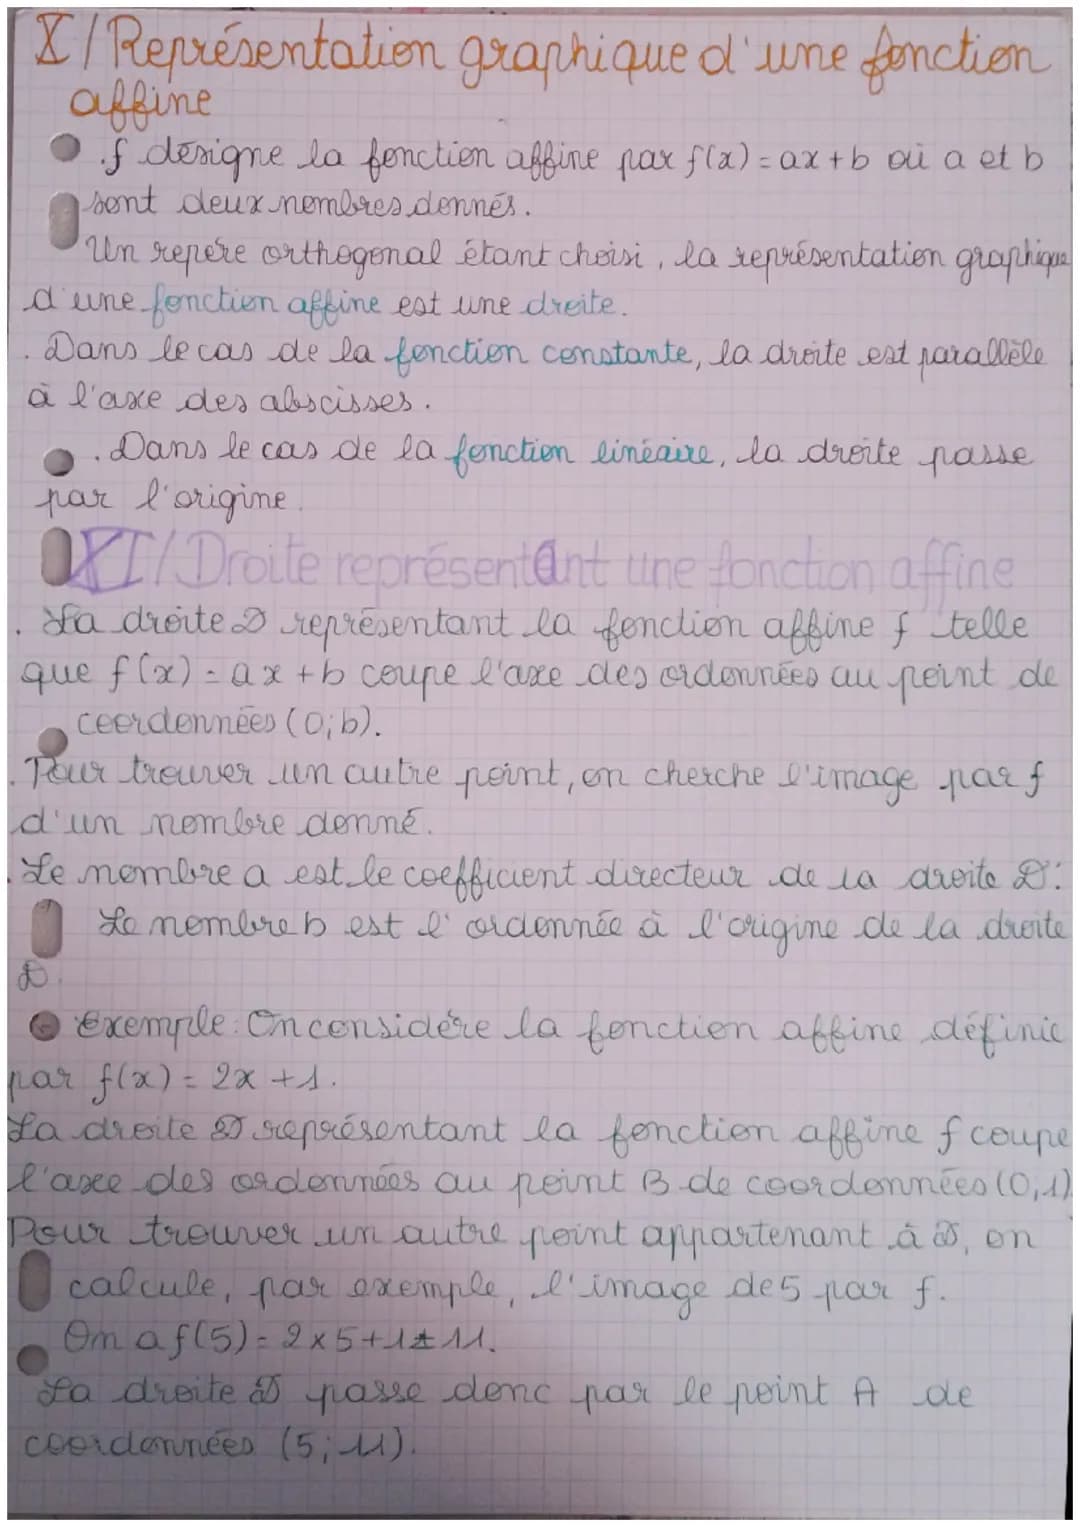 X/ Représentation graphique d'une fonction
affine
. f désigne la fonction affine par f(x) = ax + b où a et b
sont deux nombres donnés.
Un repère orthogonal étant choisi, la représentation graphique
d'une fonction affine est une droite.
. Dans le cas de la fonction constante, la droite est parallèle
à l'axe des abscisses.
. Dans le cas de la fonction linéaire, la droite passe
par l'origine.
XI/ Droite représentant une fonction affine
. La droite D représentant la fonction affine f telle
que f(x) = ax + b coupe l'axe des ordonnées au point de
coordonnées (0; b).
. Pour trouver un autre point, on cherche l'image par f
d'un nombre donné.
. Le nombre a est le coefficient directeur de la droite D.
Le nombre b est l'ordonnée à l'origine de la droite
D.
Exemple: On considère la fonction affine définie
par f(x) = 2x + 1.
La droite D représentant la fonction affine f coupe
l'axe des ordonnées au point B de coordonnées (0,1)
Pour trouver un autre point appartenant à D, on
calcule, par exemple, l'image de 5 par f.
On a f(5) = 2 x 5 + 1 = 11.
La droite D passe donc par le point A de
coordonnées (5; 11).